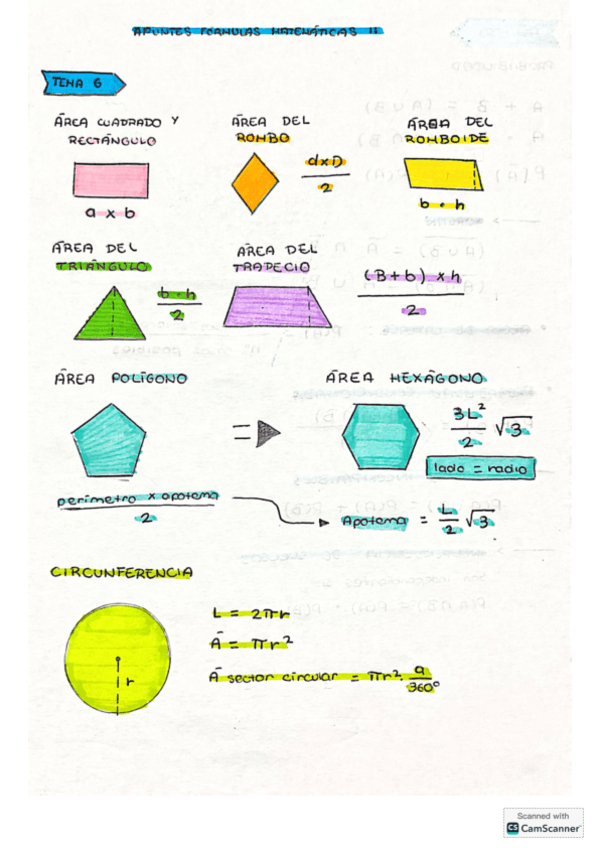 APUNTES FÓRMULAS MATEMÁTICAS II
TEMA 6
ÁREA CUADRADO Y RECTÁNGULO
a x b
ÁREA DEL ROMBO
dxD
2
ÁREA DEL ROMBOIDE
b · h
ÁREA DEL TRIÁNGULO
b · h
2
ÁREA DEL TRAPECIO
(B+b) x h
2
ÁREA POLÍGONO
perímetro x apotema
2
ÁREA HEXÁGONO
3L²
2
√3
lado = radio
Apotema = L/2 √3
CIRCUNFERENCIA
r
L = 2πr
Á = πr²
Á sector circular = πr² · a/360°
Scanned with
CS CamScanner